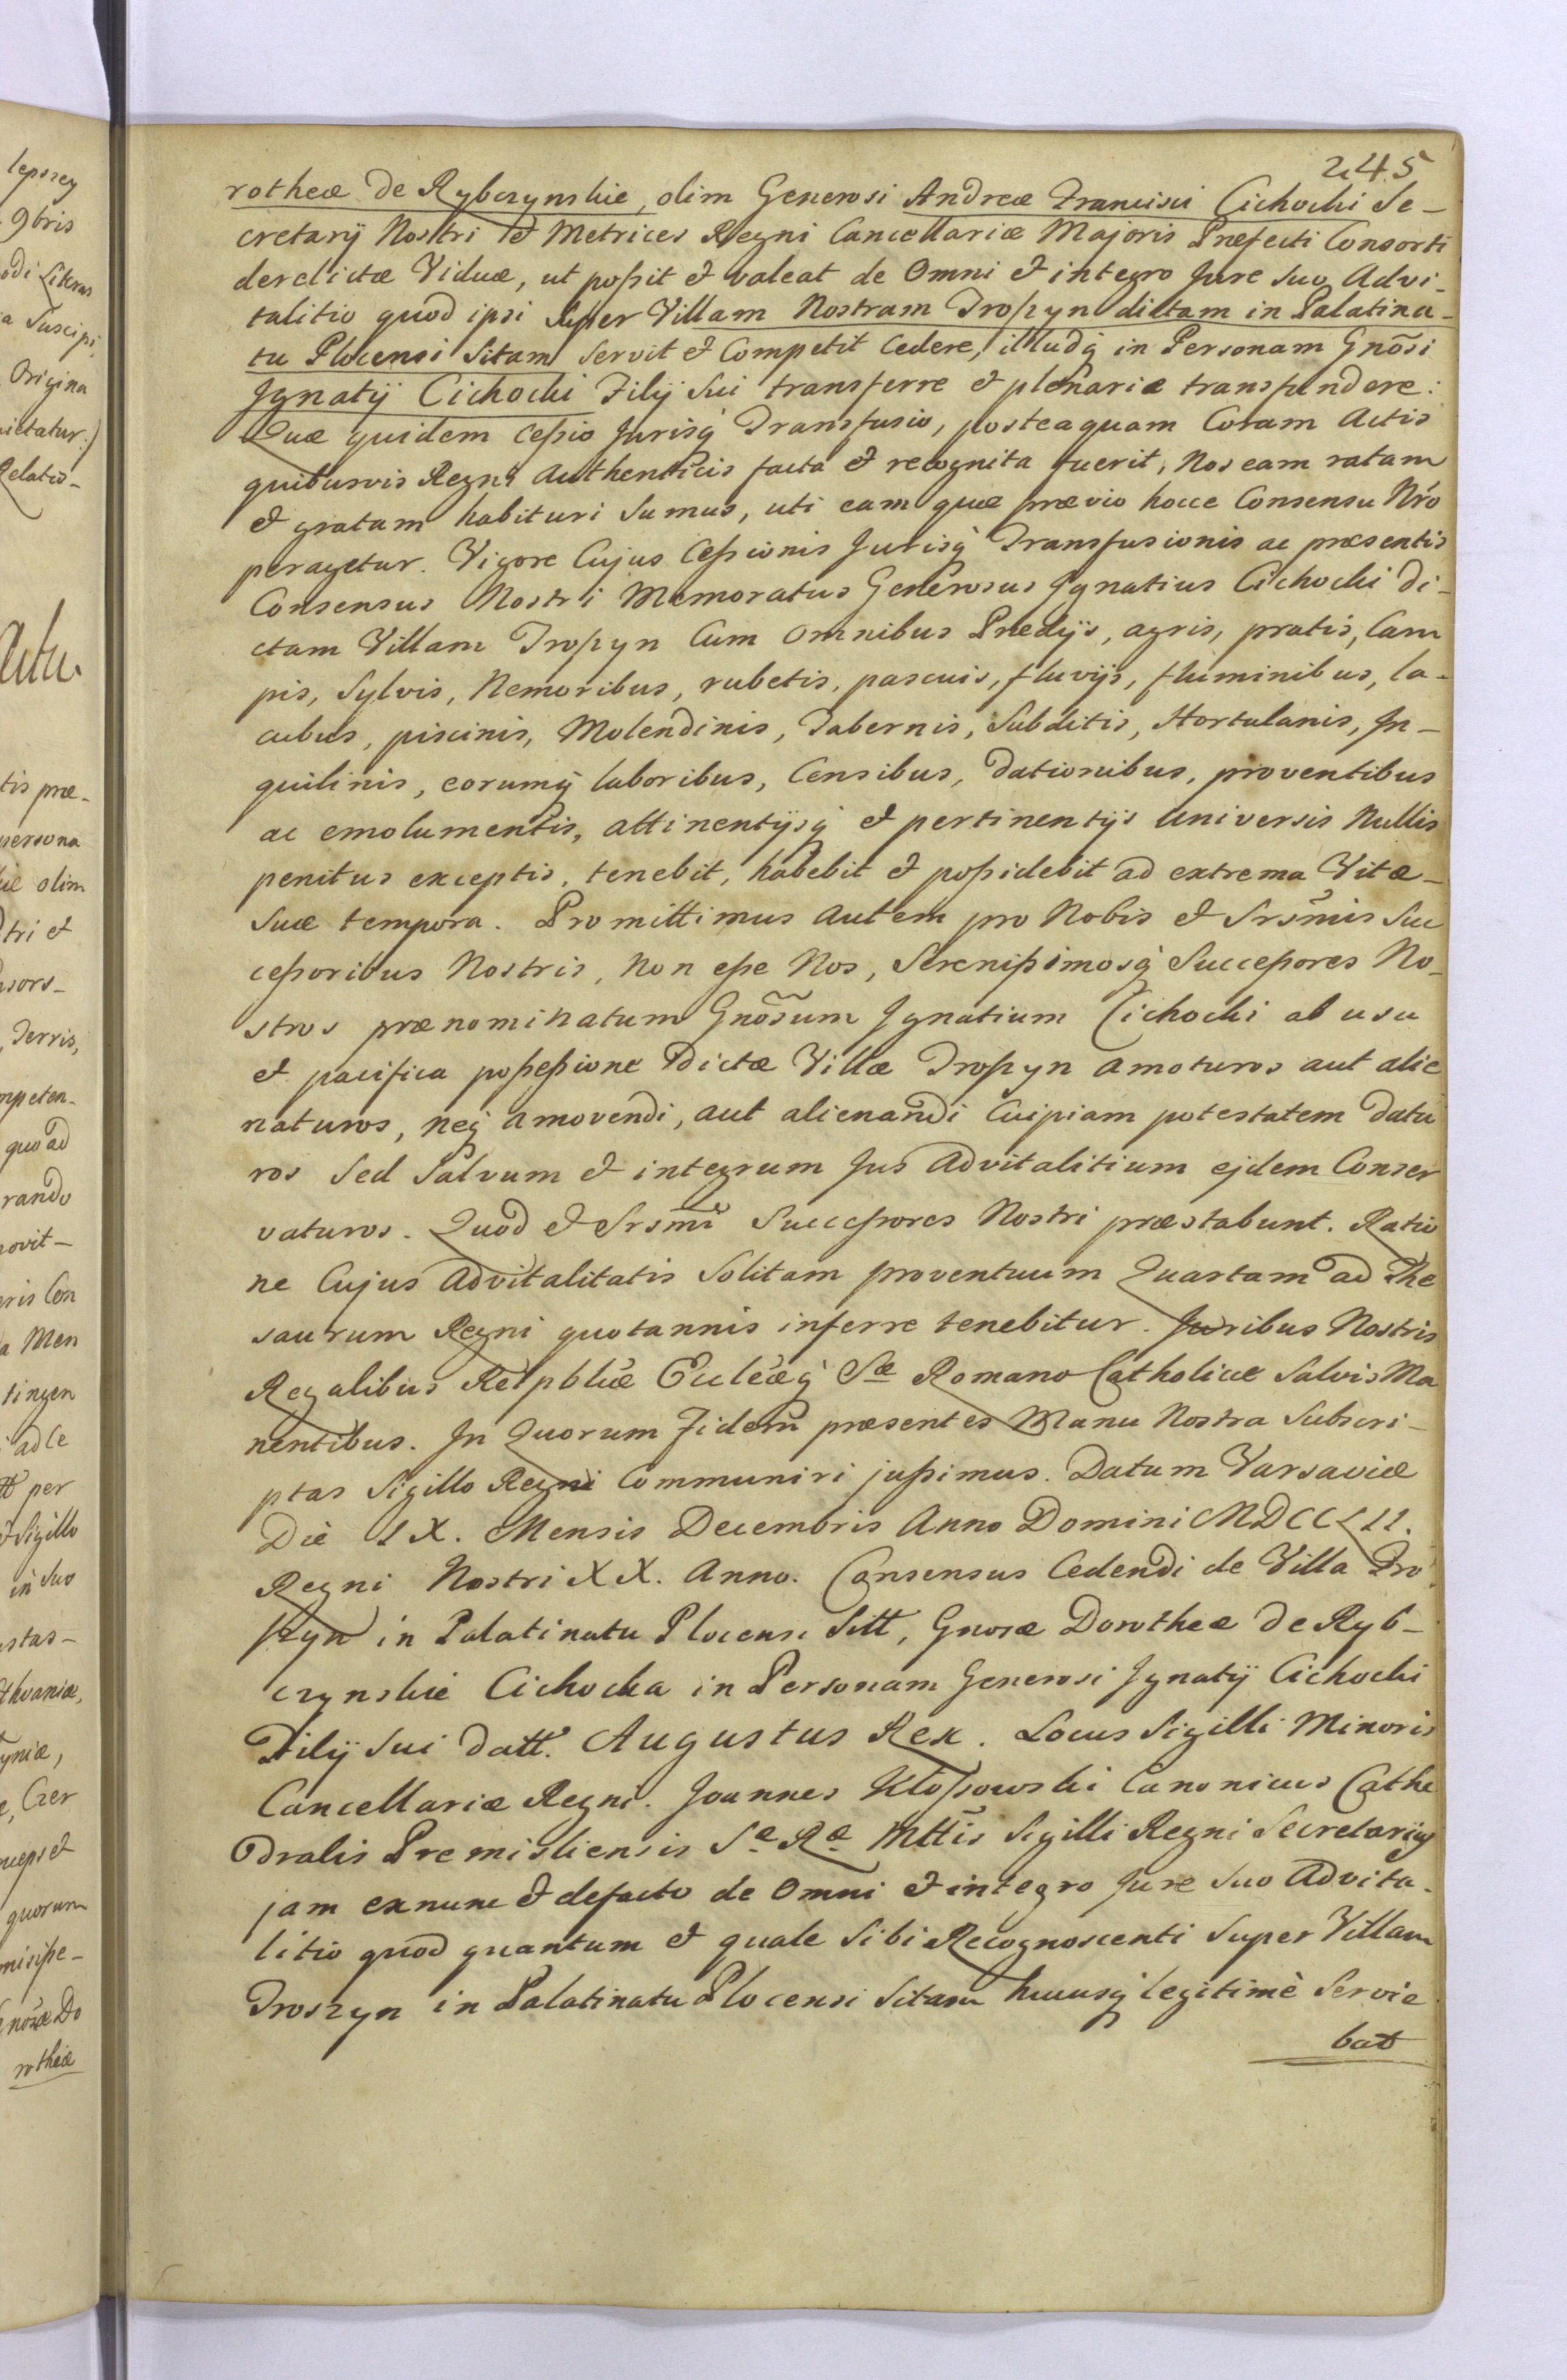 245
rotheæ de Rybczynskie, olim Generosi Andreæ Francisci Cichocki Se-
cretarij Nostri et Metrices Regni Cancellariæ Majoris Præfecti Consorti
derelictæ Viduæ, ut poßit et valeat de Omni et integro Jure Suo Advi-
talitio quod ipsi Super Villam Nostram Troszyn dictam in Palatina-
tu Plocensi Sitam Servit et Competit Cedere, illudq̃ in Personam Gnõsi
Jgnatij Cichocki Filij Sui transferre et plenariæ transfundere:
Quæ quidem Ceßio Jurisq̃ Transfusio, posteaquam Coram Actis
quibusvis Regni Authenticis facta et recognita fuerit, Nos eam ratam
et gratam habituri Sumus, uti eam quæ prævio hocce Consensu Nr̃o
peragetur. Vigore Cujus Ceßionis Jurisq̃ Transfusionis ac præsentis
Consensus Nostri Memoratus Generosus Jgnatius Cichocki Di-
ctam Villam Troszyn Cum Omnibus Prædijs, agris, pratis, Cam
pis, Sylvis, Nemoribus, rubetis, pascuis, fluvijs, fluminibus, la-
cubus, piscinis, Molendinis, Tabernis, Subditis, Hortulanis, Jn-
quilinis, eorumq̃ laboribus, Censibus, Dationibus, proventibus
ac emolumentis, attinentijsq̃ et pertinentijs Universis Nullis
penitus exceptis, tenebit, habebit et poßidebit ad extrema Vitæ-
Suæ tempora. Promittimus Autem pro Nobis et Srsm̃is Suc
ceßoribus Nostris, Non eße Nos, Serenißimosq̃ Succeßores No-
stros prænominatum Gnõsum Jgnatium Cichocki ab usu
et pacifica poßeßione Dictæ Villæ Troszyn amoturos aut alie
naturos, neq̃ amovendi, aut alienandi Cuipiam potestatem Datu
ros Sed Salvum et integrum Jus Advitalitium ejdem Conser
vaturos. Quod et Srsm̃i Succeßores Nostri præstabunt. Ratio
ne Cujus Advitalitatis Solitam proventuum Quartam ad The
saurum Regni quotannis inferre tenebitur. Juribus Nostris
Regalibus Reipblicæ Eccleæq̃ Sæ Romano Catholicæ Salvis Ma
nentibus. Jn Quorum Fidem præsentes Manu Nostra Subscri-
ptas Sigillo Regni Communiri jußimus. Datum Varsaviæ
Die IX. Mensis Decembris Anno Domini MDCCLII.
Regni Nostri XX. Anno. Consensus Cedendi de Villa Tro
szyn in Palatinatu Plocensi Sitt, Gnosæ Dorotheæ De Ryb-
czynskie Cichocka in Personam Generosi Jgnatij Cichocki
Filij Sui Datt. Augustus Rex. Locus Sigilli Minoris
Cancellariæ Regni. Joannes Kłoßowski Canonicus Cathe
Dralis Premisliensis Sæ Ræ Mttis Sigilli Regni Secretarius
jam exnunc et defacto de Omni et integro Jure Suo Advita-
litio quod quantum et quale Sibi Recognoscenti Super Villam
Troszyn in Palatinatu Plocensi Sitam hucusq̃ legitimè Servie
bat